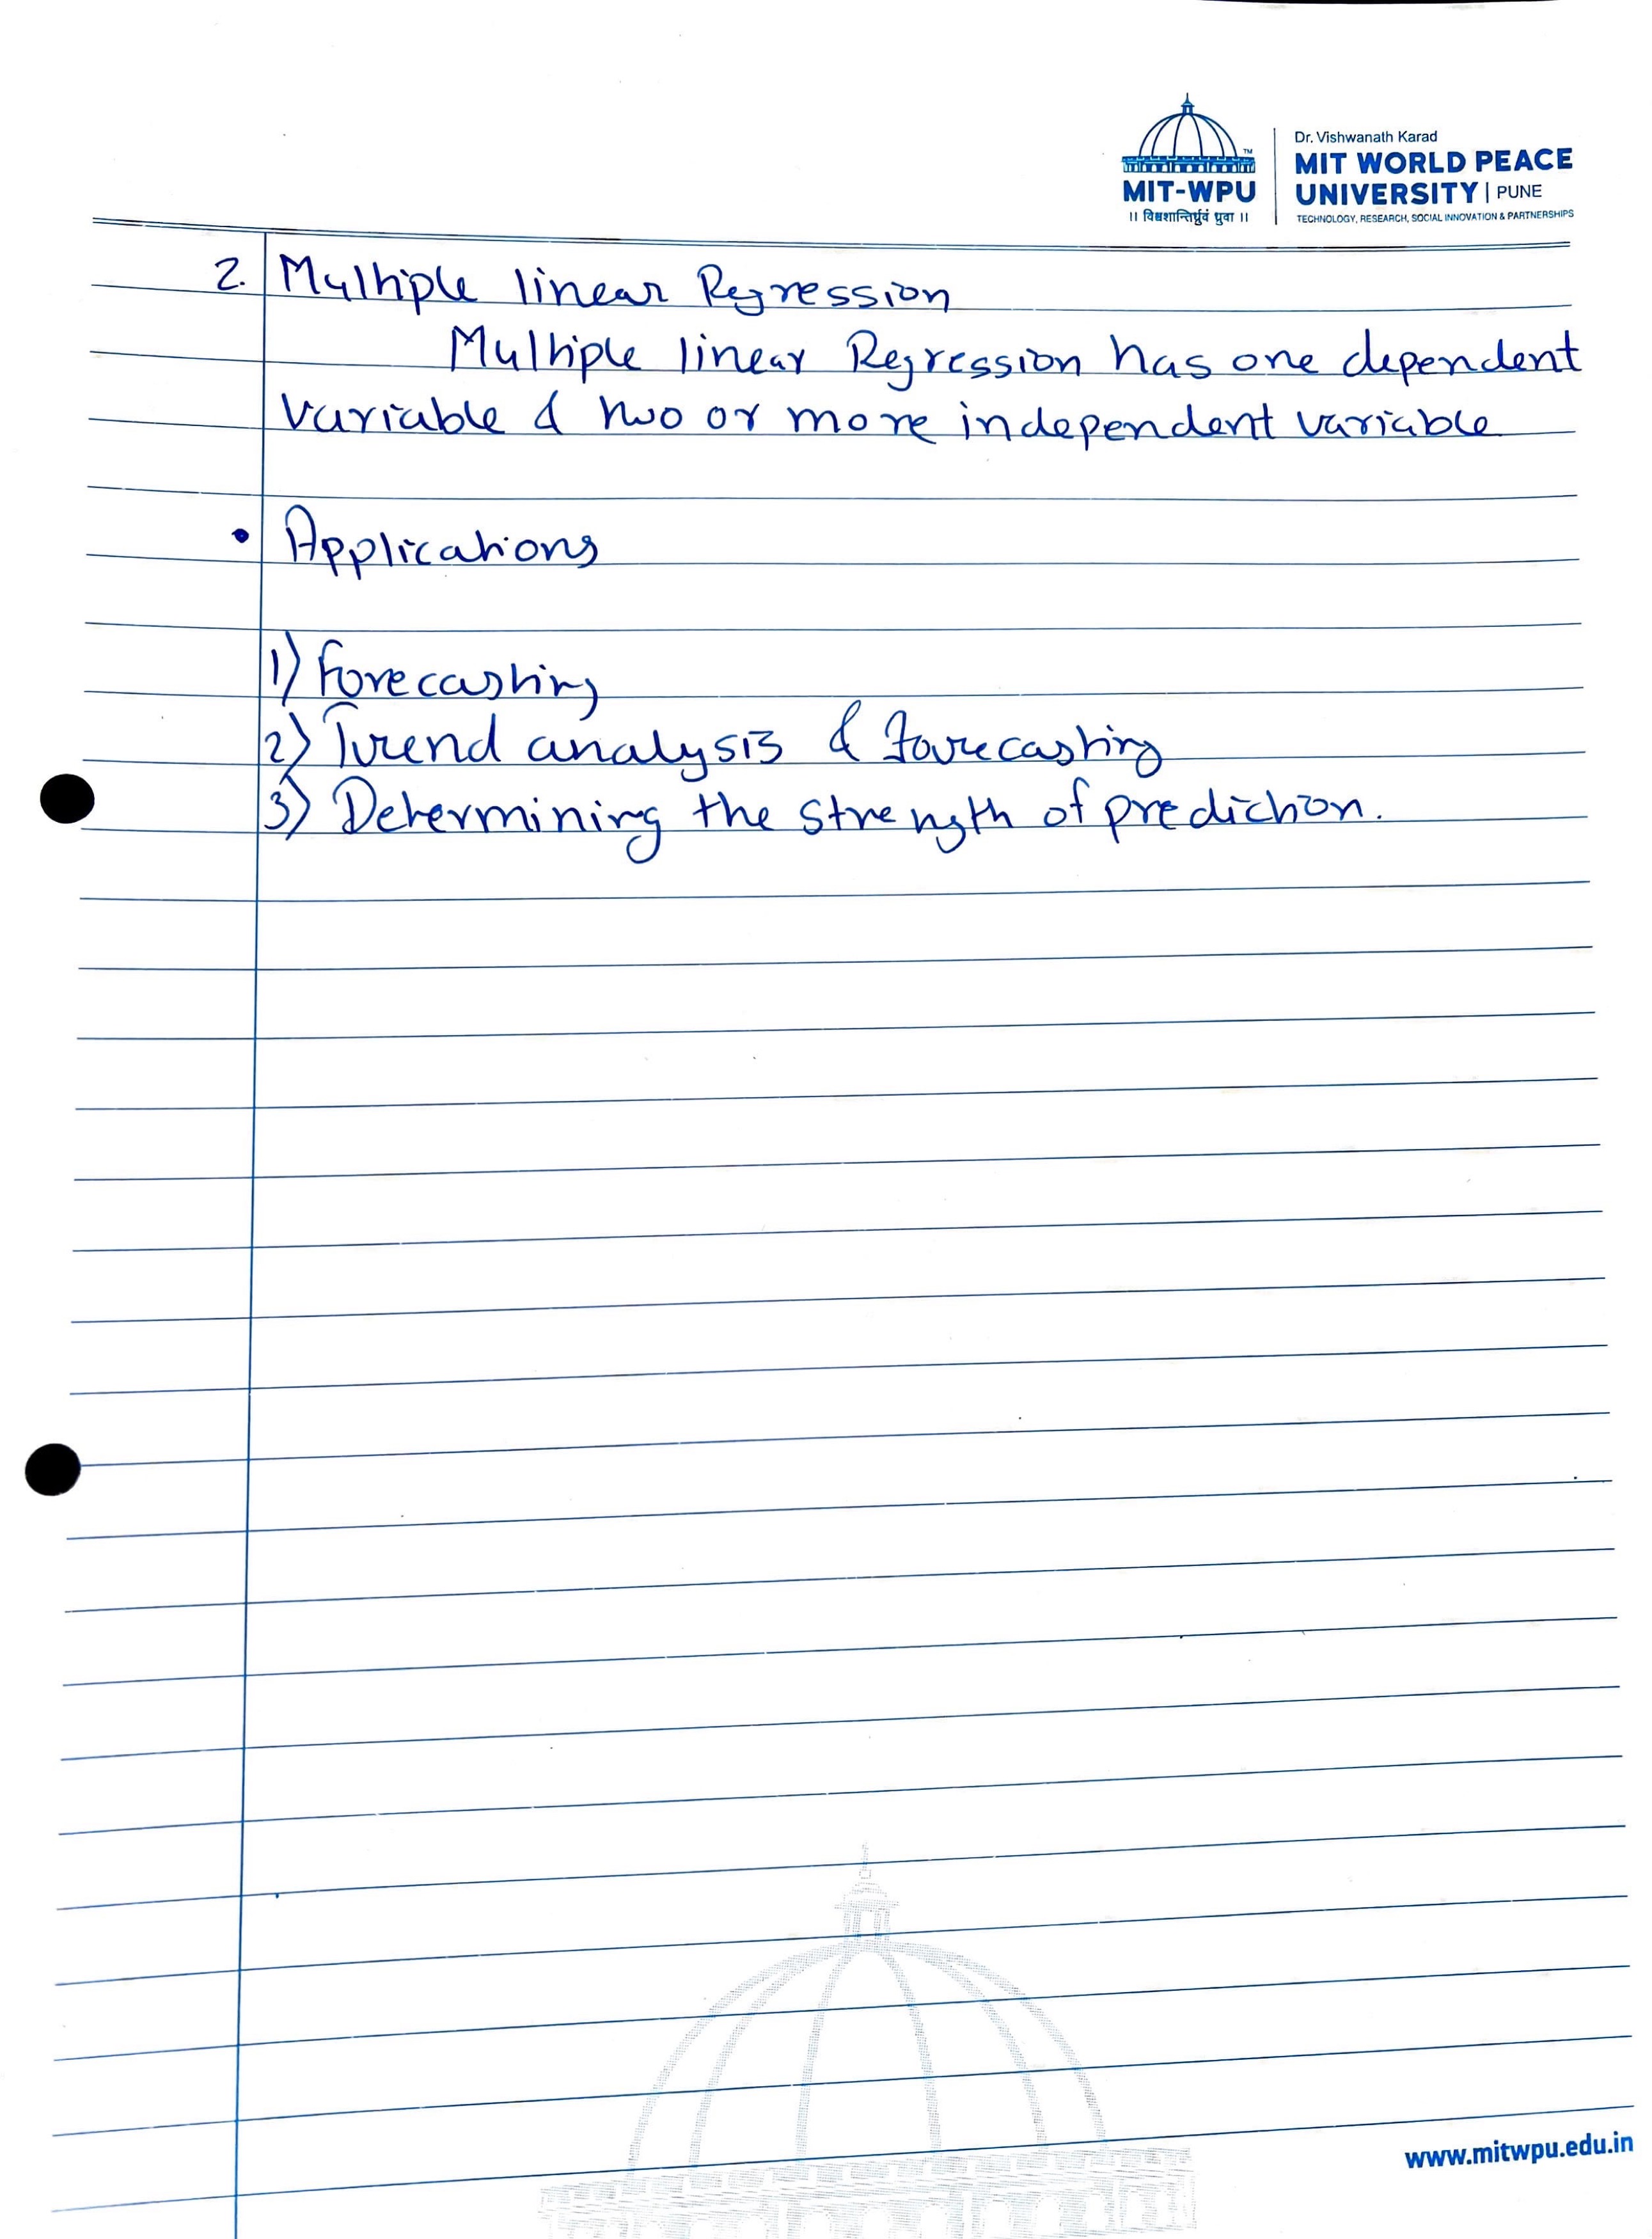 Dr. Vishwanath Karad
MIT WORLD PEACE
UNIVERSITY | PUNE
TECHNOLOGY, RESEARCH, SOCIAL INNOVATION & PARTNERSHIPS
TM
MIT-WPU
॥ विश्वशान्तिर्ध्रुवं ध्रुवा ॥
2. Multiple linear Regression
Multiple linear Regression has one dependent
variable & two or more independent variable
• Applications
1) Forecasting
2) Trend analysis & forecasting
3) Determining the strength of prediction.
www.mitwpu.edu.in